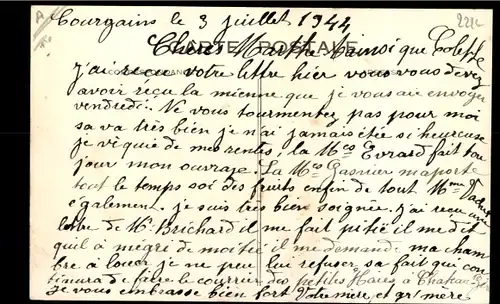 Courgains le 3 juillet 1944
2212
CARTE POSTALE
Chère Marthe ainsi que
j'ai reçu votre lettre hier vous vous devez
avoir reçu la mienne que je vous ai envoyer
vendredi. Ne vous tourmentez pas pour moi
sa va très bien je n'ai jamais étée si heureuse
je vi que de mes rentes, la Mce Evrard fait tou
jour mon ouvrage. La Gasnier m'aporte
tout le temps soi des fruits enfin de tout Mme
également je suis très bien soignée. j'ai reçu une
lettre de Mr Brichard il me fait pitié il me dit
qu'il a mégre de moitié il me demande ma cham
bre à louer je ne peu lui refuser sa fait qui con
tinura de faire le courrier des petites
Je vous embrasse bien fort Votre mère et gr'mère